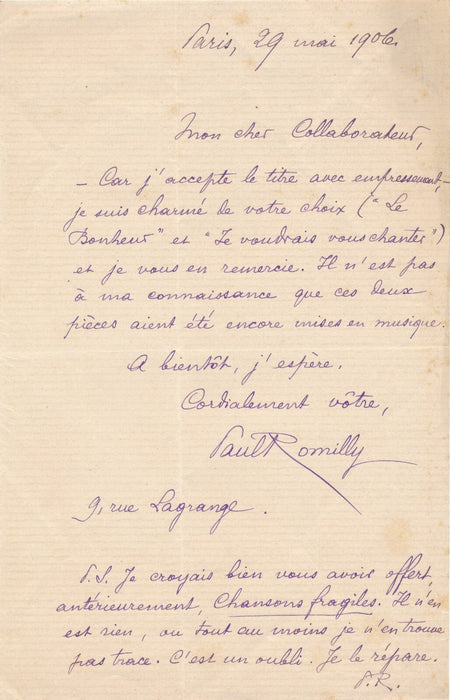 Paris, 29 mai 1906.
Mon cher Collaborateur,
- Car j'accepte le titre avec empressement, -
je suis charmé de votre choix ("Le
Bonheur" et "Je voudrais vous chanter")
et je vous en remercie. Il n'est pas
à ma connaissance que ces deux
pièces aient été encore mises en musique.
A bientôt, j'espère.
Cordialement vôtre,
Paul Romilly
9, rue Lagrange.
P.S. Je croyais bien vous avoir offert,
antérieurement, Chansons fragiles. Il n'en
est rien, ou tout au moins je n'en trouve
pas trace. C'est un oubli. Je le répare.
P.R.